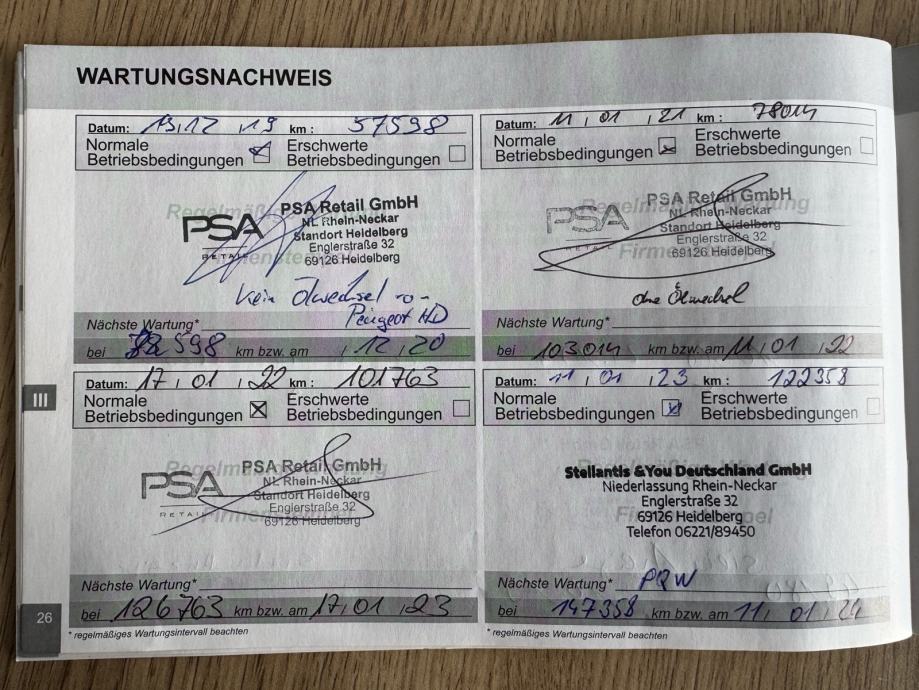 WARTUNGSNACHWEIS
Datum: 13,12,19 km: 57598
Normale
Betriebsbedingungen
Erschwerte
Betriebsbedingungen
PSA
RETAIL
PSA Retail GmbH
NL Rhein-Neckar
Standort Heidelberg
Englerstraße 32
69126 Heidelberg
Kein Ölwechsel
Peugeot HD
Nächste Wartung*
bei 598 km bzw. am , 12 , 20
Datum: 11 , 01 , 21 km: 78014
Normale
Betriebsbedingungen
Erschwerte
Betriebsbedingungen
PSA
RETAIL
PSA Retail GmbH
NL Rhein-Neckar
Standort Heidelberg
Englerstraße 32
69126 Heidelberg
ohne Ölwechsel
Nächste Wartung*
bei 103014 km bzw. am 11 , 01 , 22
III
Datum: 17 , 01 , 22 km: 101763
Normale
Betriebsbedingungen
Erschwerte
Betriebsbedingungen
PSA
RETAIL
PSA Retail GmbH
NL Rhein-Neckar
Standort Heidelberg
Englerstraße 32
69126 Heidelberg
Nächste Wartung*
bei 126763 km bzw. am 17 , 01 , 23
Datum: 11 , 01 , 23 km: 122358
Normale
Betriebsbedingungen
Erschwerte
Betriebsbedingungen
Stellantis &You Deutschland GmbH
Niederlassung Rhein-Neckar
Englerstraße 32
69126 Heidelberg
Telefon 06221/89450
Nächste Wartung*
bei 147358 km bzw. am 11 , 01 , 24
26
* regelmäßiges Wartungsintervall beachten
* regelmäßiges Wartungsintervall beachten